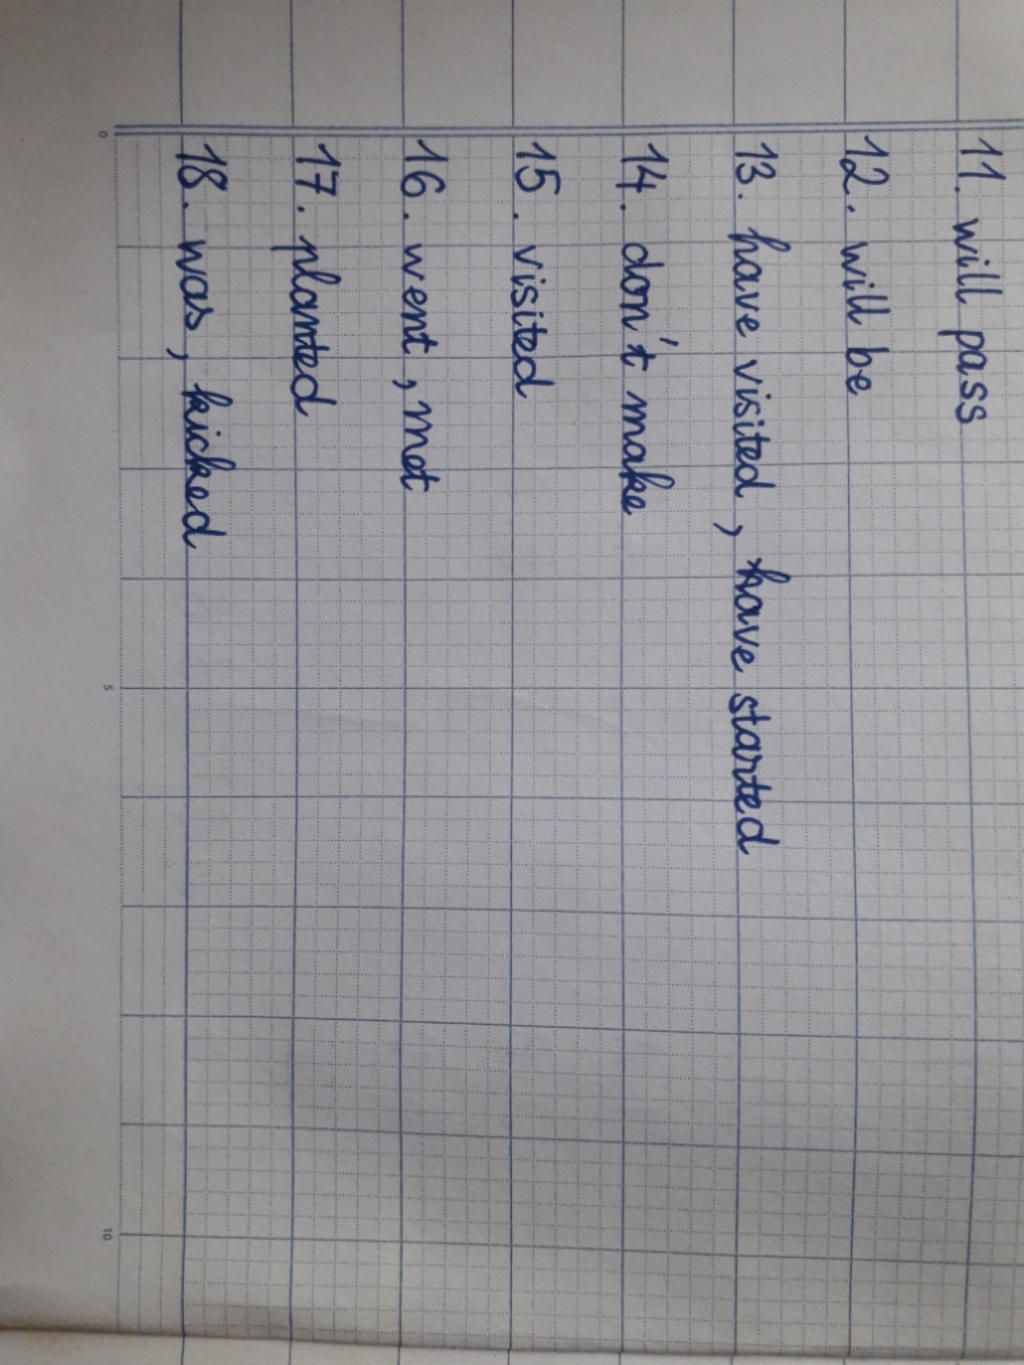 11. will pass
12. will be
13. have visited, have started
14. don't make
15. visited
16. went, met
17. planted
18. was, kicked
0
5
10